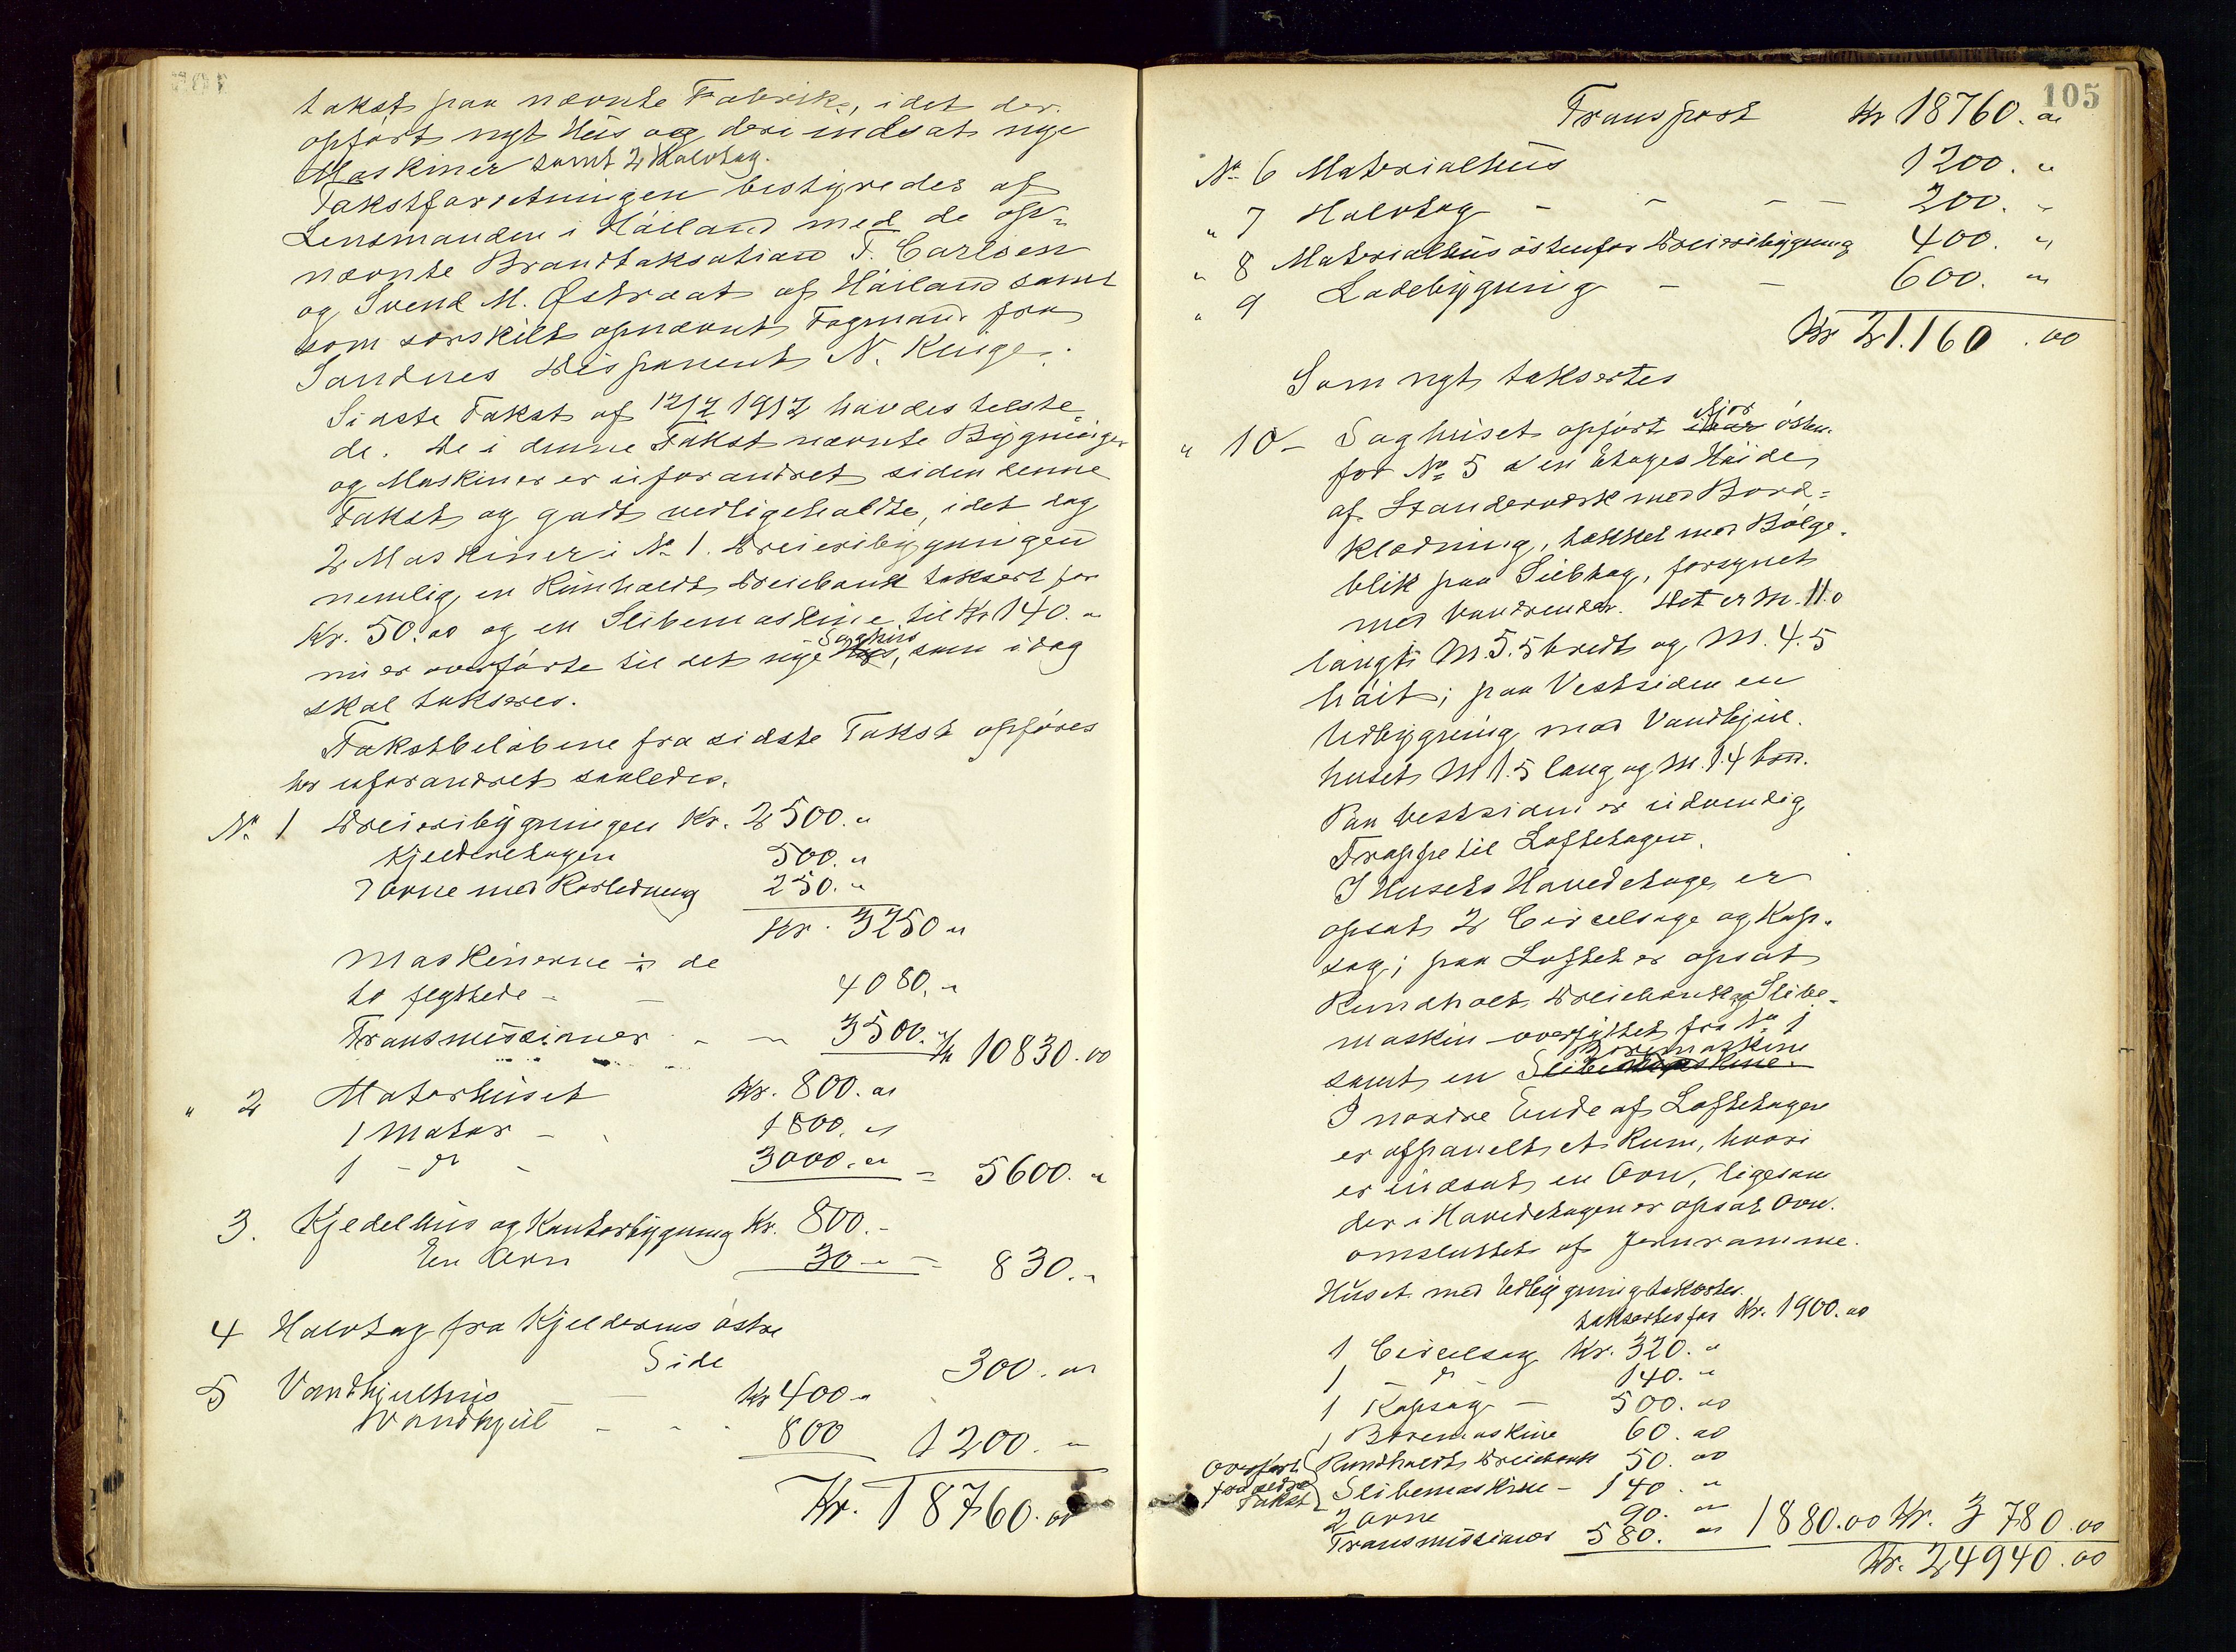 takst paa nævnte Fabrik, idet der
opført nyt Hus og deri indsat nye
Maskiner samt 2 Halvtag.
Takstforretningen bestyredes af
Lensmanden i Háiland med de op-
nævnte Brandtaksatian T. Carlsen
og Svend M. Østraat af Háiland samt
som særskilt opnævnt Fagmand fra
Sandnes Disponent N. Kluge.
Sidste Takst af 12/2 1912 havdes tilste-
de. De i denne Takst nævnte Bygninger
og Maskiner er uforandret siden denne
Takst og godt vedligeholdte, idet dog
2 Maskiner i № 1. Dreieribygningen
nemlig en Rundholdt Dreiebænk taksert for
Kr. 50.00 og en Slibemaskine til Kr 140. "
nu er overførte til det nye Saghus, som idag
skal takseres.
Takstbeløbene fra sidste Takst opføres
her uforandret saaledes.
№ 1 Dreieribygningen Kr. 2500. "
Kjelderetagen 500. "
7 Ovne med Rørledning 250. "
Kr. 3250 "
Maskinerne ÷ de
to flyttede - - 4080. "
Transmissioner - - 3500. " Kr 10830.00
" 2 Motorhuset Kr. 800.00
1 Motor - 1800. "
1 - do - 3000. " = 5600. "
3. Kjedelhus og Kontorbygning Kr. 800.-
En Ovn 30 - = 830. "
4 Halvtag fra Kjelderens østre
Side 300. "
5 Vandhjulhus - Kr 400 "
Vandhjul - - 800 1200. "
Kr. 18760.00
105
Transport Kr 18760. "
№ 6 Materialhus 1200. "
" 7 Halvtag - - - - 200. "
" 8 Materialhus østenfor Dreieribygning 400. "
" 9 Ladebygning - - 600. "
Kr 21.160.00
Som nyt taksertes
" 10 - Saghuset opført iaar østen-
for № 5 i en Etages Høide
af Standerværk med Bord-
klædning, tækket med Bølge-
blik paa Sutag, forsynet
med Vandrender. Det er M. 11.0
langt M. 5.5 bredt og M. 4.5
høit; paa Vestsiden en
Udbygning mod Vandhjul-
huset M 1.5 lang og M. 1.4 bred.
Paa Vestsiden er udvendig
Trappe til Loftetagen.
I Husets Hovedetage er
opsat 2 Circelsage og Kap-
sag; paa Loftet er opsat
Rundholt Dreiebænk og Slibe-
maskin overflyttet fra № 1
samt en Slibemaskine. Boremaskine
I nordre Ende af Loftetagen
er afpanelt et Rum, hvori
er indsat en Ovn, ligesom
der i Hovedetagen er opsat Ovn
omsluttet af Jernramme.
Huset med Udbygning takstes.
taksertes for Kr. 1900.00
1 Circelsag Kr. 320. "
1 do 140. "
1 Kapsag - 500.00
1 Boremaskine 60.00
Overført fra ældre Takst { Rundholdt Dreiebænk 50.00
Slibemaskine - 140. "
2 Ovne 90. "
Transmissioner 580. " 1880.00 Kr. 3780.00
Kr. 24940.00